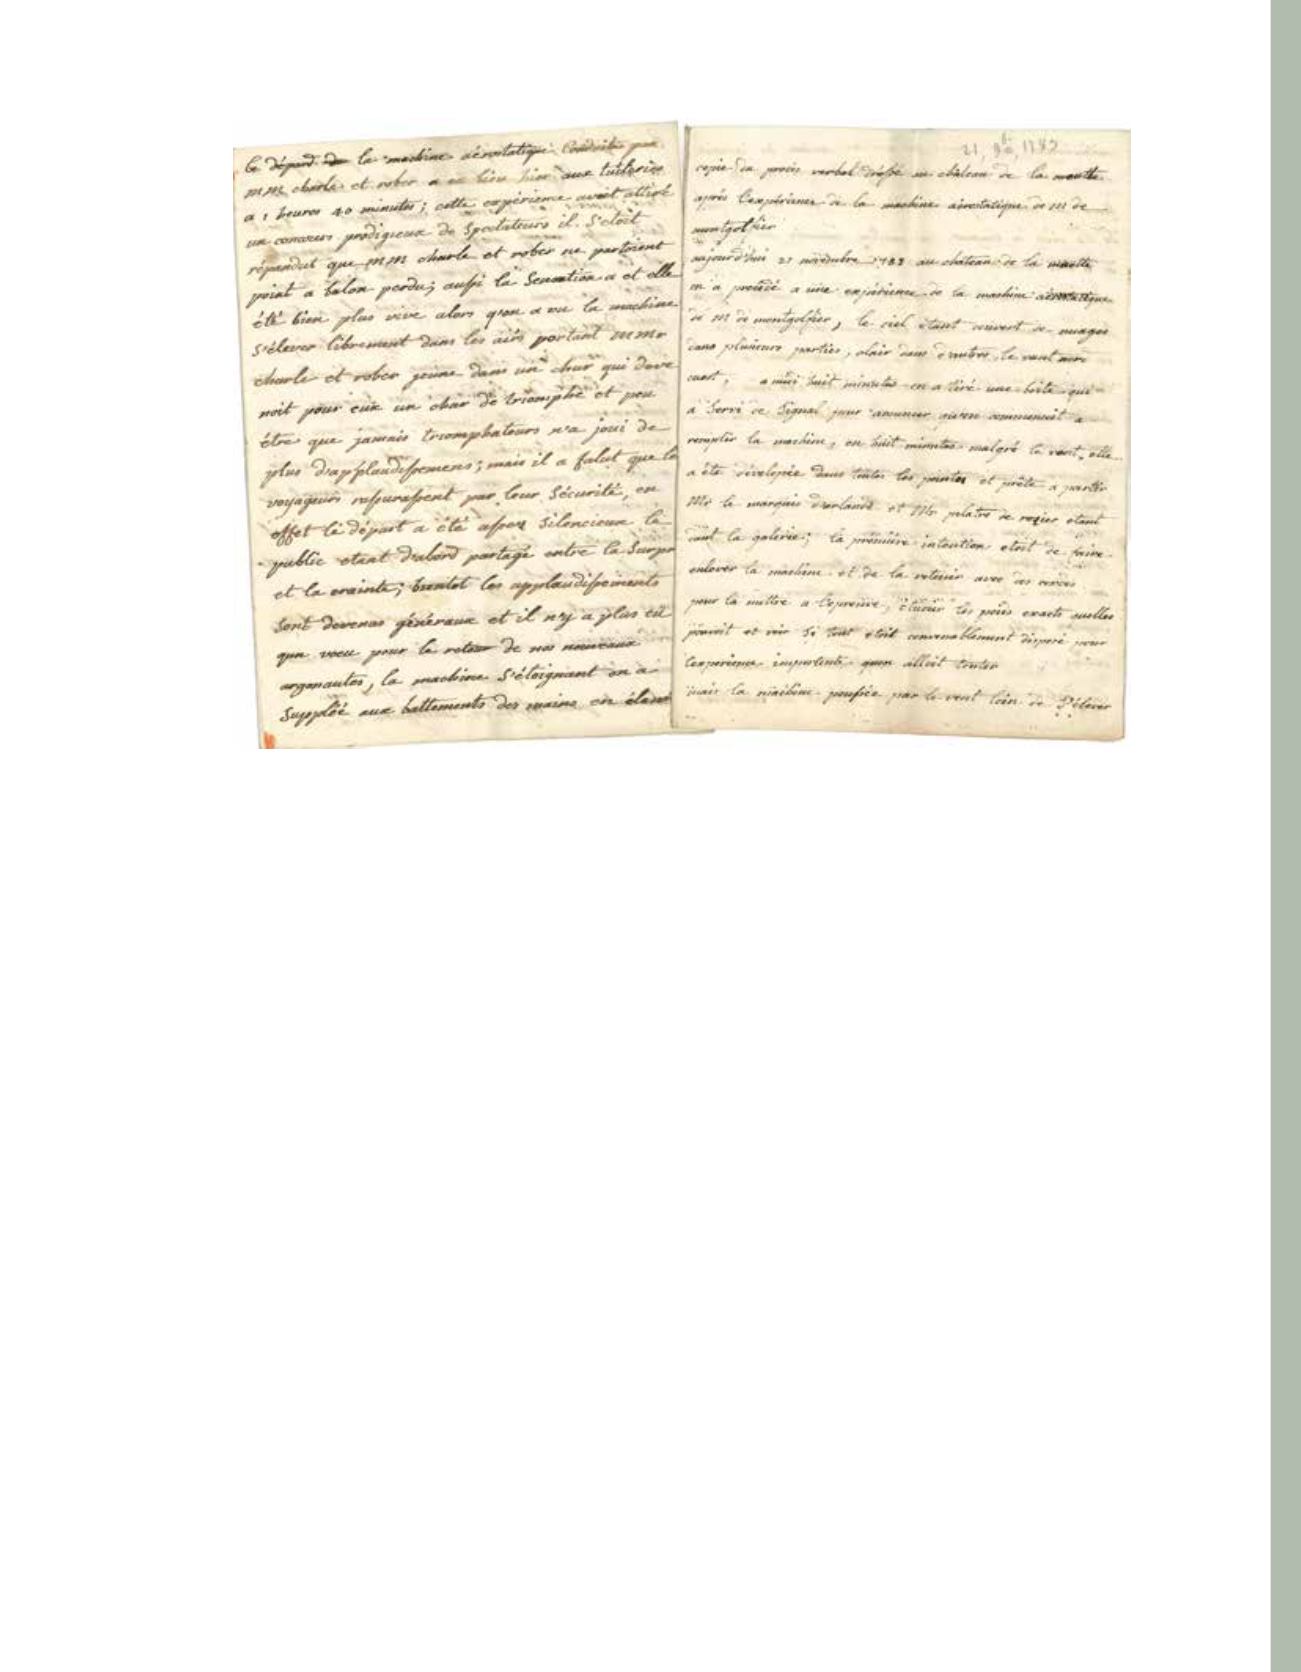 le départ de la machine aérostatique Conduite par
MM charle et rober a eu lieu hier aux tuileries
a 1 heures 40 minutes ; cette expérience avoit attiré
un concours prodigieux de Spectateurs il S'etoit
répandut que MM charle et rober ne partoient
point a balon perdu ; aussi la Sensation a et elle
été bien plus vive alors qu'on a vu la machine
S'élever librement dans les airs portant MMr
charle et rober jeune dans un char qui deve
noit pour eux un char de triomphe et peu
être que jamais triomphateurs n'a joui de
plus d'applaudissemens ; mais il a falut que le
voyageurs rassurassent par leur Sécurité, en
effet le départ a été assez Silencieux le
public etant d'abord partagé entre la Surpr
et la crainte ; bientot les applaudissements
Sont devenus généraux et il n'y a plus eû
que voeu pour le retour de nos nouveaux
argonautes, la machine S'éloignant on a
Suppléé aux battements des mains en élevant
21, 9bre, 1783
copie du procès verbal dréssé au château de la muette
après l'expérience de la machine aérostatique de M de
montgolfier
aujourd'hui 21 novembre 1783 au château de la muette
on a procédé a une expérience de la machine aérostatique
de M de montgolfier, le ciel étant couvert de nuages
dans plusieurs parties, clair dans d'autres, le vent nord
ouest, a midi huit minutes on a tiré une boite qui
a Servi de Signal pour annoncer qu'on commencoit a
remplir la machine, en huit minutes malgré le vent, elle
a été dévelopée dans toutes les points et prête a partir
Mr le marquis d'arlande et Mr pilatre de rozier etant
dans la galerie ; la première intention etoit de faire
enlever la machine et de la retenir avec des cordes
pour la mettre a l'epreuve, étudier les poids exacts quelles
pouvoit et voir Si tout etoit convenablement disposé pour
l'experience importente quon alloit tenter
mais la machine poussée par le vent loin de S'élever